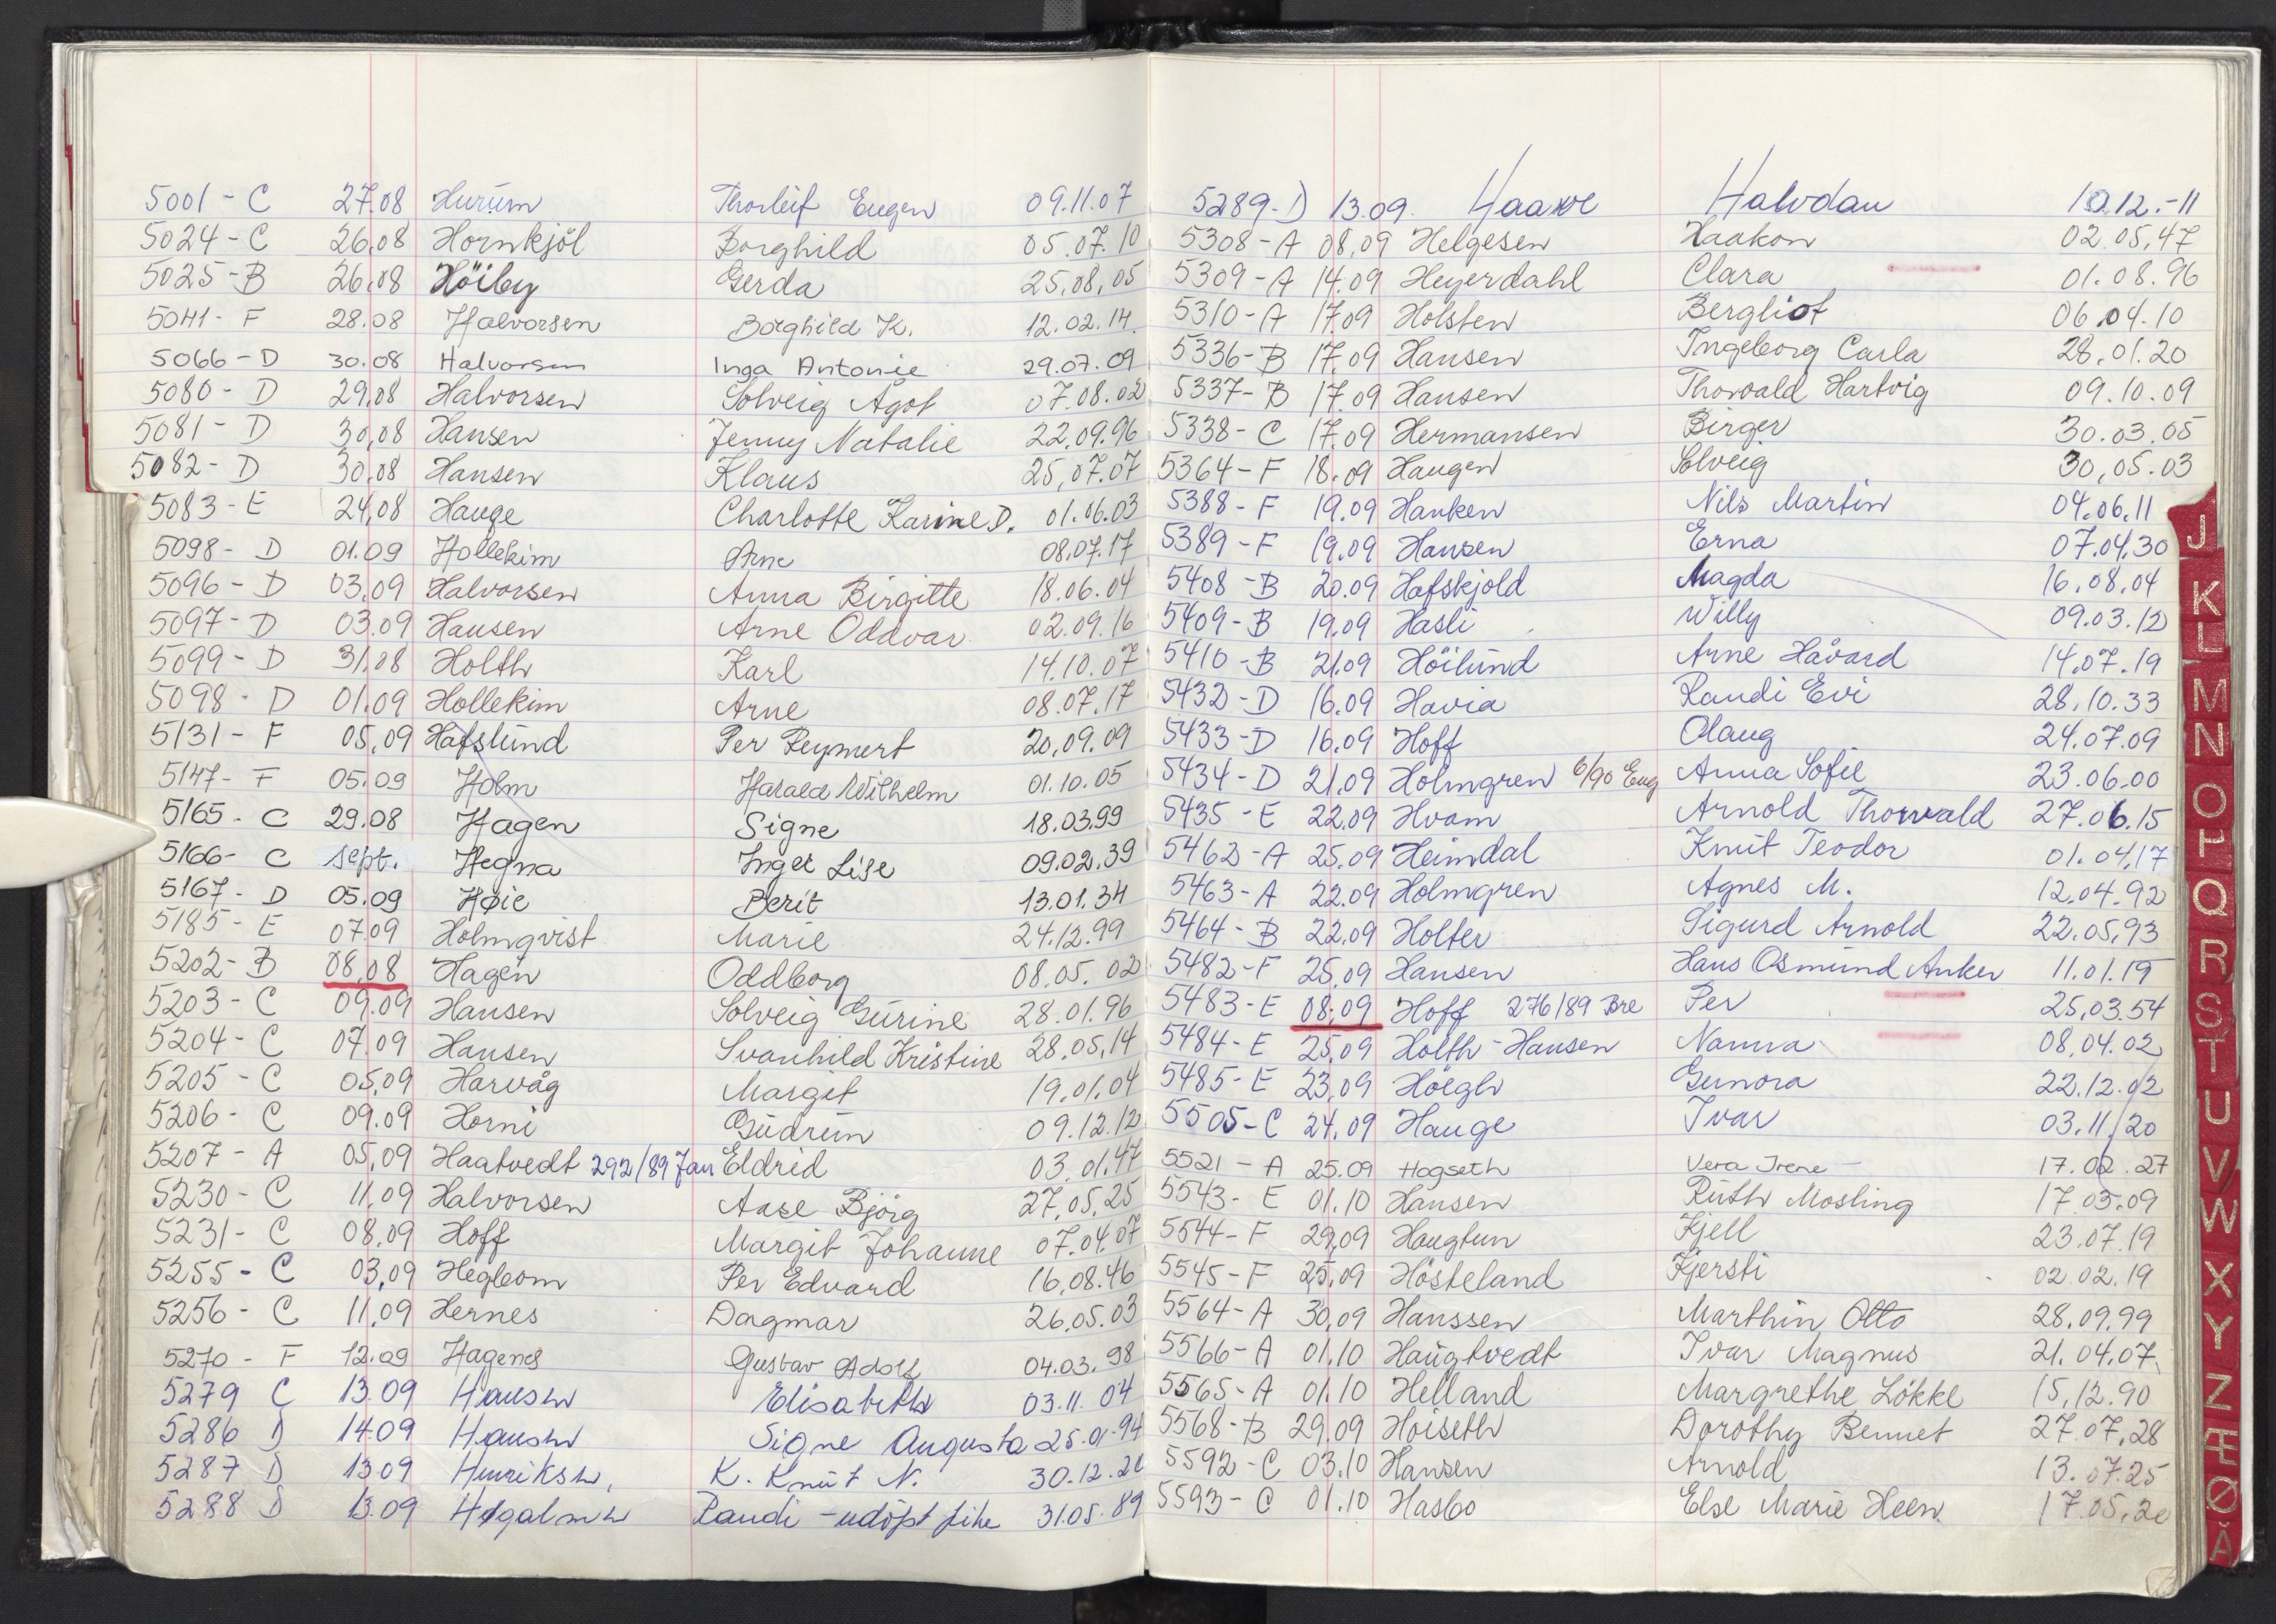 5001 - C 27.08 Hurum Thorleif Eugen 09.11.07
5024 - C 26.08 Hornkjöl Borghild 05.07.10
5025 - B 26.08 Höiby Gerda 25.08.05
5041 - F 28.08 Halvorsen Borghild K. 12.02.14
5066 - D 30.08 Halvorsen Inga Antonie 29.07.09
5080 - D 29.08 Halvorsen Solveig Agot 07.08.02
5081 - D 30.08 Hansen Jenny Natalie 22.09.96
5082 - D 30.08 Hansen Klaus 25.07.07
5083 - E 24.08 Hauge Charlotte Karine D. 01.06.03
5098 - D 01.09 Hollekim Arne 08.07.17
5096 - D 03.09 Halvorsen Anna Birgitte 18.06.04
5097 - D 03.09 Hansen Arne Oddvar 02.09.16
5099 - D 31.08 Holth Karl 14.10.07
5098 - D 01.09 Hollekim Arne 08.07.17
5131 - F 05.09 Hafslund Per Reymert 20.09.09
5147 - F 05.09 Holm Harald Wilhelm 01.10.05
5165 - C 29.08 Hagen Signe 18.03.99
5166 - C sept. Hegna Inger Lise 09.02.39
5167 - D 05.09 Høie Berit 13.01.34
5185 - E 07.09 Holmqvist Marie 24.12.99
5202 - B 08.08 Hagen Oddborg 08.05.02
5203 - C 09.09 Hansen Solveig Gurine 28.01.96
5204 - C 07.09 Hansen Svanhild Kristine 28.05.14
5205 - C 05.09 Harvåg Margit 19.01.04
5206 - C 09.09 Horni Gudrun 09.12.12
5207 - A 05.09 Haatvedt 292/89 Jan Eldrid 03.01.47
5230 - C 11.09 Halvorsen Aase Bjørg 27.05.25
5231 - C 08.09 Hoff Margit Johanne 07.04.07
5255 - C 03.09 Hegleom Per Edvard 16.08.46
5256 - C 11.09 Hernes Dagmar 26.05.03
5270 - F 12.09 Hagenes Gustav Adolf 04.03.98
5279 C 13.09 Hansen Elisabeth 03.11.04
5286 D 14.09 Hansen Signe Augusta 25.01.94
5287 D 13.09 Henriksen, K. Knut N. 30.12.
5288 D 13.09 Randi - udöpt 31.05.89
5289 - D 13.09. Halvdan 10.12.-11
5308 - A 08.09 Helgesen Haakon 02.05.47
5309 - A 14.09 Heyerdahl Clara 01.08.96
5310 - A 17.09 Holsten Bergliot 06.04.10
5336 - B 17.09 Hansen Ingeborg Carla 28.01.20
5337 - B 17.09 Hansen Thorvald Hartvig 09.10.09
5338 - C 17.09 Hermansen Birger 30.03.05
5364 - F 18.09 Haugen Solveig 30.05.03
5388 - F 19.09 Hanken Nils Martin 04.06.11
5389 - F 19.09 Hansen Erna 07.04.30
5408 - B 20.09 Hafskjold Magda 16.08.04
5409 - B 19.09 Hasli Willy 09.03.12
5410 - B 21.09 Höilund Arne Håvard 14.07.19
5432 - D 16.09 Havia Randi Evi 28.10.33
5433 - D 16.09 Hoff Olaug 24.07.09
5434 - D 21.09 Holmgren 6/90 Eug Anna Sofie 23.06.00
5435 - E 22.09 Hvam Arnold Thorvald 27.06.15
5462 - A 25.09 Heimdal Knut Teodor 01.04.17
5463 - A 22.09 Holmgren Agnes M. 12.04.92
5464 - B 22.09 Holter Sigurd Arnold 22.05.93
5482 - F 25.09 Hansen Hans Osmund Anker 11.01.19
5483 - E 08.09 Hoff 276/89 Bre Per 25.03.54
5484 - E 25.09 Holth - Hansen Nanna 08.04.02
5485 - E 23.09 Höegh Gunora 22.12.02
5505 - C 24.09 Hauge Ivar 03.11.20
5521 - A 25.09 Hogseth Vera Irene 17.02.27
5543 - E 01.10 Hansen Ruth Mosling 17.05.09
5544 - F 29.09 Haugtun Kjell 23.07.19
5545 - F 25.09 Hösteland Kjersti 02.02.19
5564 - A 30.09 Hanssen Marthin Otto 28.09.99
5566 - A 01.10 Haugtvedt Ivar Magnus 21.04.07
5565 - A 01.10 Helland Margrethe Lökke 15.12.90
5568 - B 29.09 Hoiseth Dorothy Bennet 27.07.28
5592 - C 03.10 Hansen Arnold 13.07.25
5593 - C 01.10 Hasbo Else Marie Heen 17.05.20
J
K
L
M
N
O
P
Q
R
S
T
U
V
W
X
Y
Z
Æ
Ø
Å